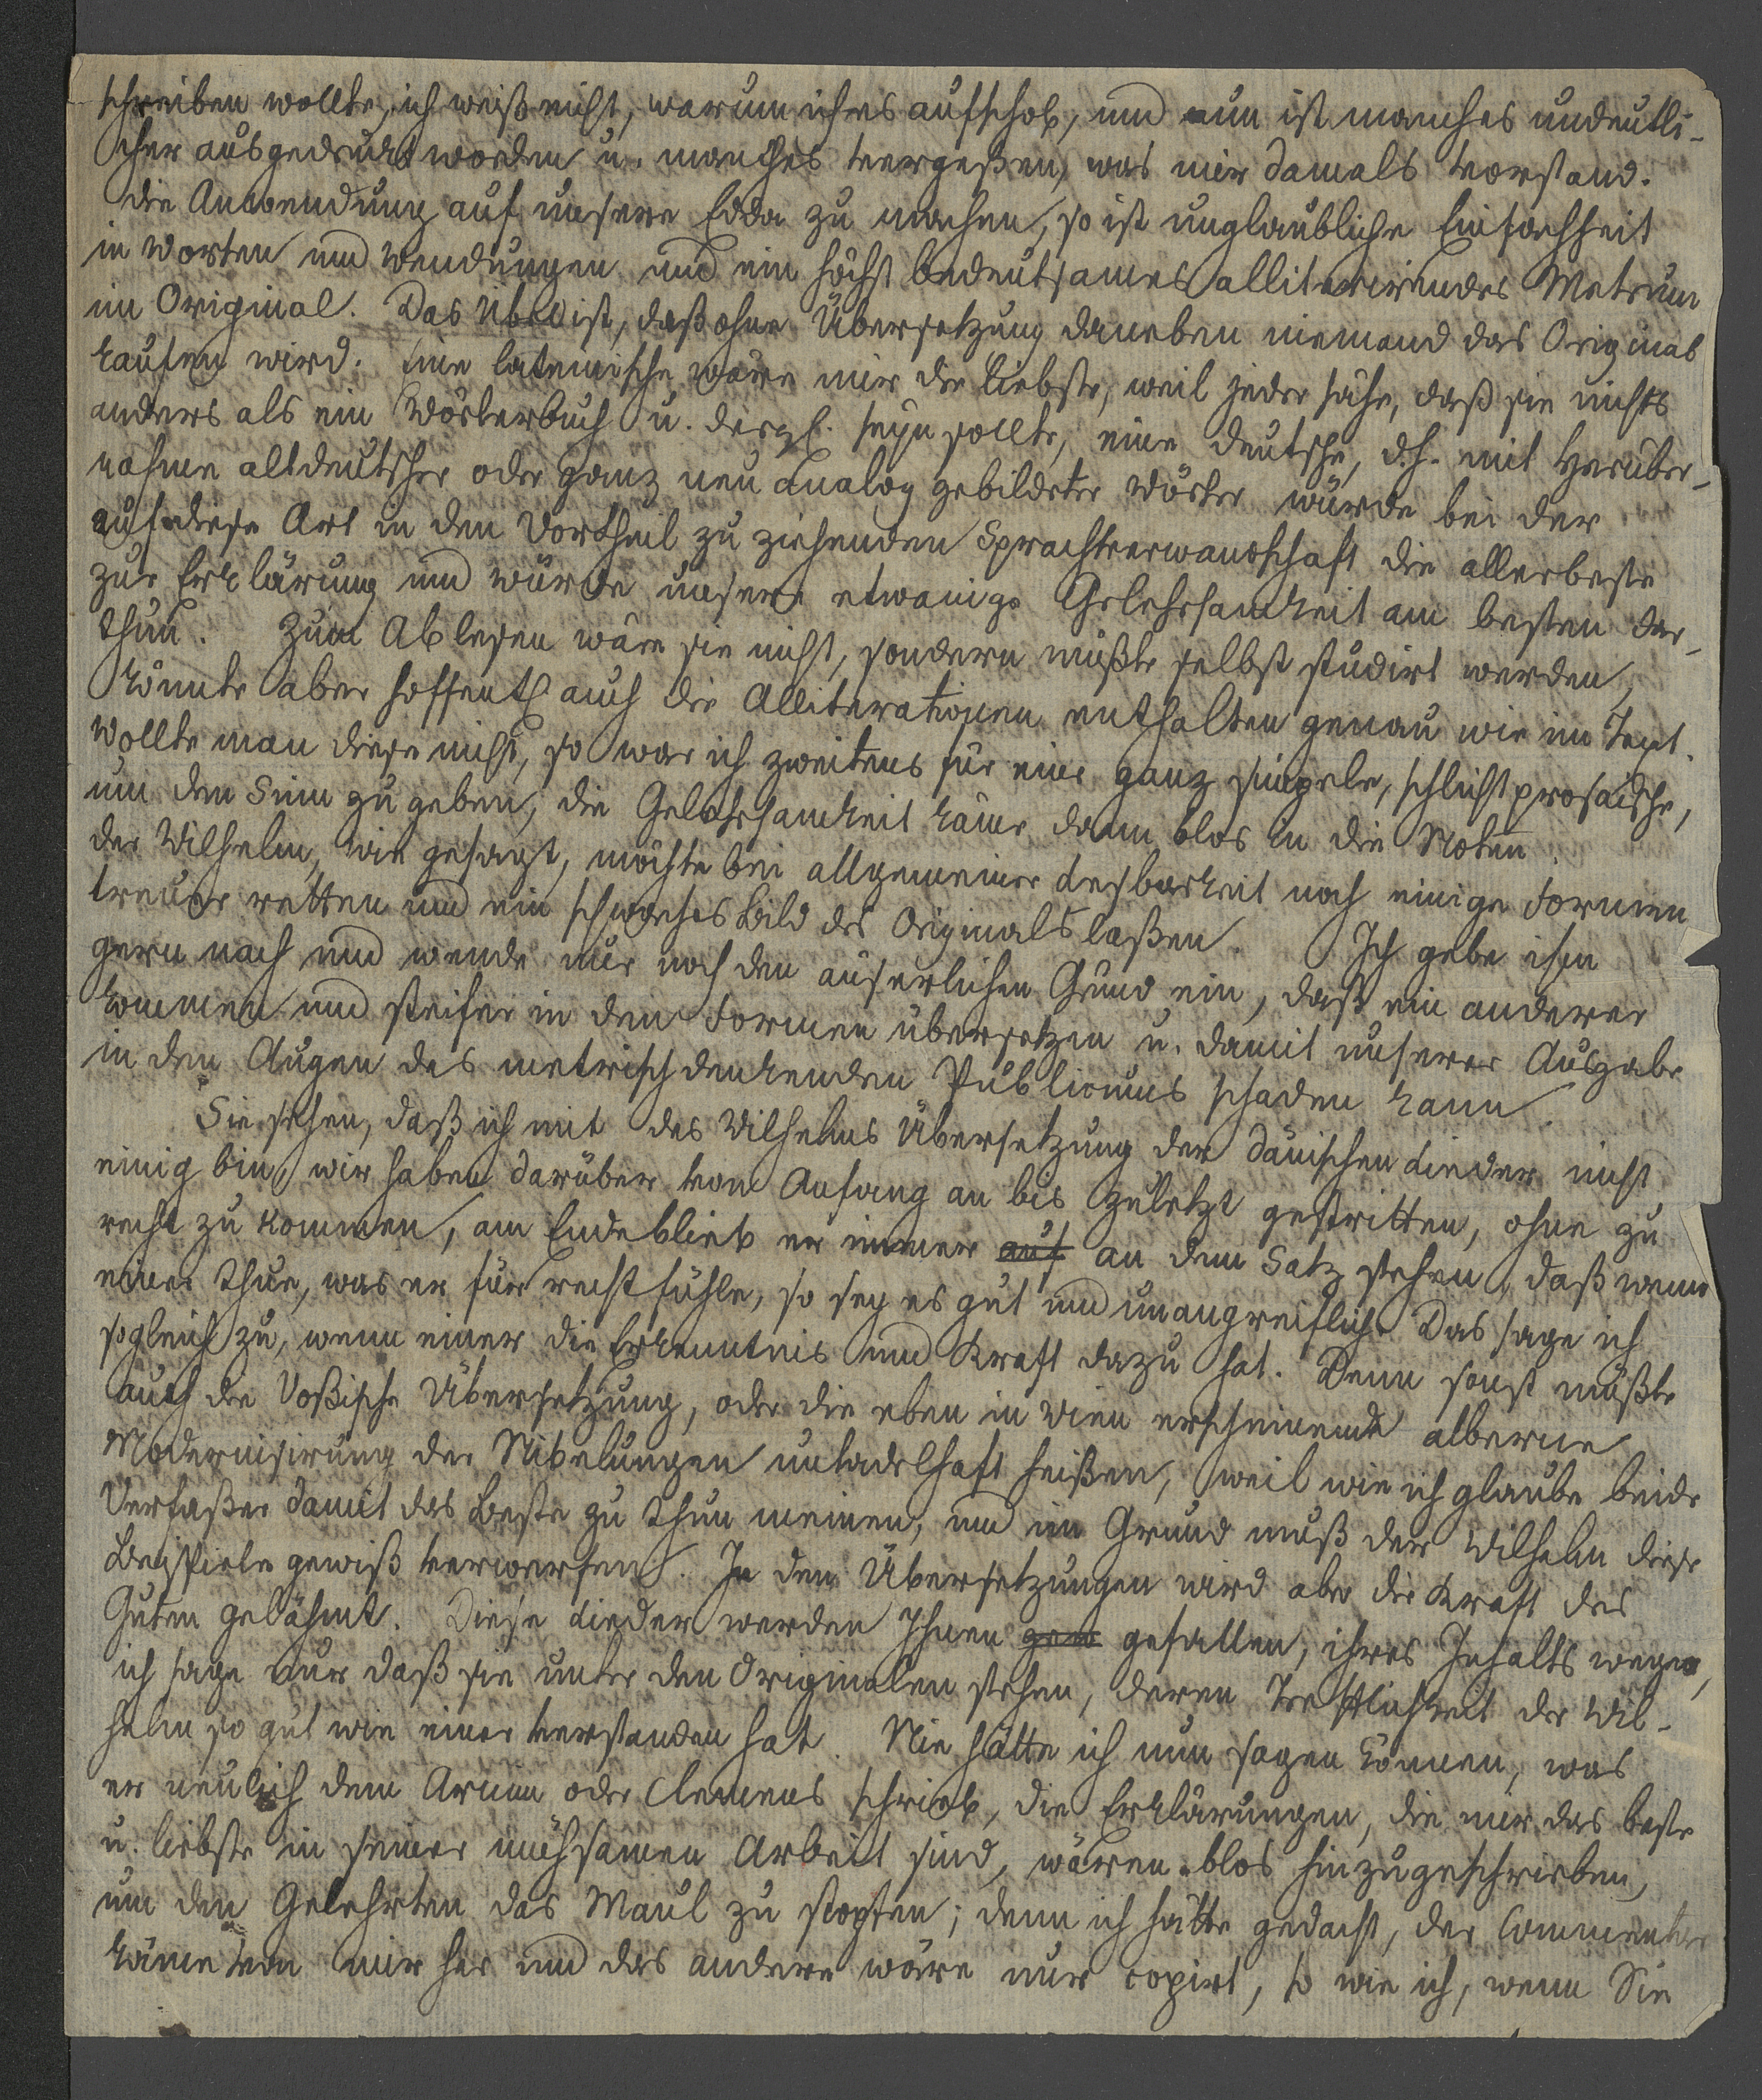 schreiben wollte, ich weiß nicht, warum ich es aufschob, und nun ist manches undeutli-
cher ausgedruckt worden u. manches vergeßen, was mir damals vorstand.
die Anwendung auf unsere Edda zu machen, so ist unglaubliche Einfachheit
in Worten und Wendungen und ein höchst bedeutsames alliterirendes Metrum
im Original. Das Übel ist, daß ohne Übersetzung daneben niemand das Original
kaufen wird. Eine lateinische wäre mir die liebste, weil jeder sähe, daß sie nichts
anders als ein Wörterbuch u. dergl. seyn sollte, eine deutsche, d.h. mit Herüber-
nahme altdeutscher oder ganz neu analog gebildeter Wörter würde bei der
auf diese Art in den Vortheil zu ziehenden Sprachverwandschaft die allerbeste
zur Erklärung und würde unsere etwanige Gelehrsamkeit am besten dar-
thun. Zum Ablesen wäre sie nicht, sondern müßte selbst studirt werden,
könnte aber hoffentl. auch die Alliterationen enthalten genau wie im Text.
Wollte man diese nicht, so war ich zweitens für eine ganz simpele, schlichtprosaische,
um den Sinn zu geben, die Gelehrsamkeit käme dann blos in die Noten.
der Wilhelm, wie gesagt, möchte bei allgemeiner Lesbarkeit noch einige Formen
treuer retten und ein schwaches Bild des Originals laßen. Ich gebe ihm
gern nach und wende nur noch den äuserlichen Grund ein, daß ein anderer
kommen und steifer in den Formen übersetzen u. damit unserer Ausgabe
in den Augen des metrisch denkenden Publicums schaden kann.
Sie sehen, daß ich mit des Wilhelms Übersetzung der dänischen Lieder nicht
einig bin, wir haben darüber von Anfang an bis zuletzt gestritten, ohne zu
recht zu kommen, am Ende blieb er immer auf an dem Satz stehen, daß wenn
einer thue, was er für recht fühle, so sey es gut und unangreiflich. Das sage ich
sogleich zu, wenn einer die Erkenntnis und Kraft dazu hat. Denn sonst müßte
auch die Voßische Übersetzung, oder die eben in Wien erscheinende alberne
Modernisirung der Nibelungen untadelhaft heißen, weil wie ich glaube beide
Verfaßer damit das Beste zu thun meinen, und im Grund muß der Wilhelm diese
Beispiele gewiß verwerfen. In den Übersetzungen wird aber die Kraft des
Guten gelähmt. Diese Lieder werden Ihnen gew gefallen, ihres Inhalts wegen,
ich sage nur daß sie unter den Originalen stehen, deren Trefflichkeit der Wil-
helm so gut wie einer verstanden hat. Nie hätte ich nun sagen können, was
er neulich dem Arnim oder Clemens schrieb, die Erklärungen, die mir das beste
u. liebste in seiner mühsamen Arbeit sind, wären blos hinzugeschrieben,
um den Gelehrten das Maul zu stopfen; denn ich hätte gedacht, der Commentar
käme von mir her und das andere wäre nur copirt, so wie ich, wenn Sie